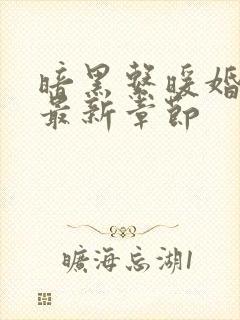 暗黑系暖婚
最新章節
曠海忘湖1